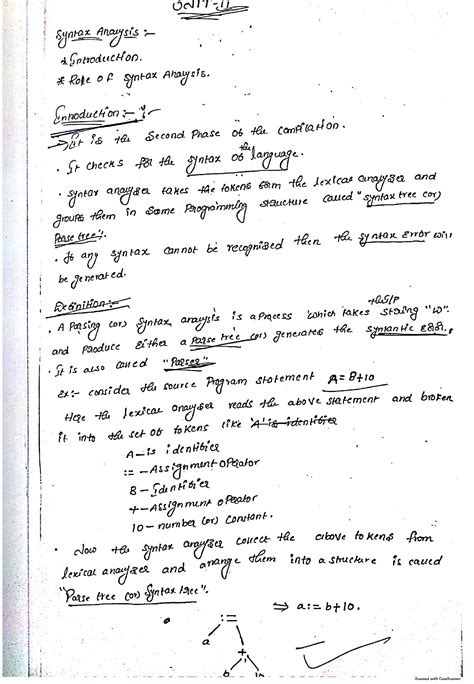 UNIT-II
Syntax Analysis :-
* Introduction.
* Role of Syntax Analysis.
Introduction :-
It is the Second Phase of the compilation.
. It checks for the syntax of the language.
. Syntax analyser takes the tokens from the lexical analyser and
groups them in some Programming structure called "syntax tree (or)
Parse tree".
. If any syntax cannot be recognised then the syntax error will
be generated.
Definition :-
. A Parsing (or) Syntax analysis is a process which takes the I/P string "w".
and produce either a parse tree (or) generates the syntactic error.
. It is also called "Parser"
Ex:- consider the source Program statement A = B+10
Here the lexical analyser reads the above statement and broken
it into the set of tokens like 'A' is identifier
A - is identifier
:= - Assignment operator
B - Identifier
+ - Assignment operator
10 - number (or) constant.
. Now the syntax analyser collect the above tokens from
lexical analyser and arrange them into a structure is called
"Parse tree (or) Syntax tree".
⇒ a:= b+10.
:=
a +
b 10
Scanned with CamScanner